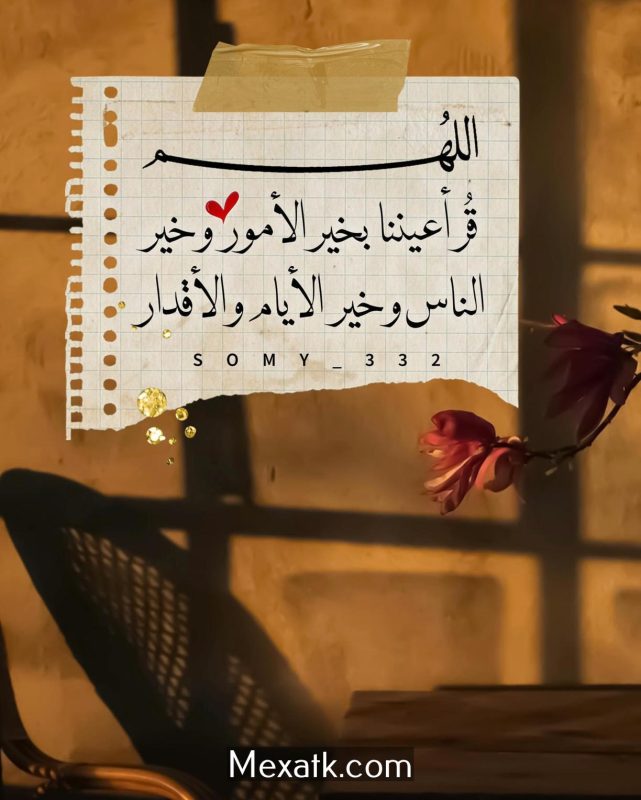 اللهُم
قُر أعيننا بخير الأمور وخير
الناس وخير الأيام والأقدار
SOMY_332
Mexatk.com